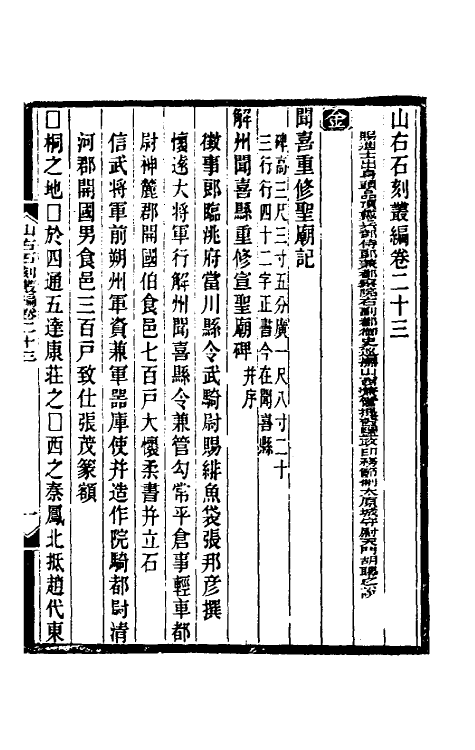 山右石刻叢編卷二十三
賜進士出身頭品頂戴兵部侍郎兼都察院右副都御史巡撫山西兼管提督鹽政印務節制太原城守尉天門胡聘之撰
金
聞喜重修聖廟記
碑高三尺三寸五分廣一尺八寸二十
三行行四十二字正書今在聞喜縣
解州聞喜縣重修宣聖廟碑并序
徵事郎臨洮府當川縣令武騎尉賜緋魚袋張邦彥撰
懷遠大將軍行解州聞喜縣令兼管勾常平倉事輕車都
尉神麓郡開國伯食邑七百戶大懷柔書并立石
信武將軍前朔州軍資兼軍器庫使并造作院騎都尉清
河郡開國男食邑三百戶致仕張茂篆額
□桐之地□於四通五達康莊之□西之秦鳳北抵趙代東
山右石刻叢編卷二十三
一